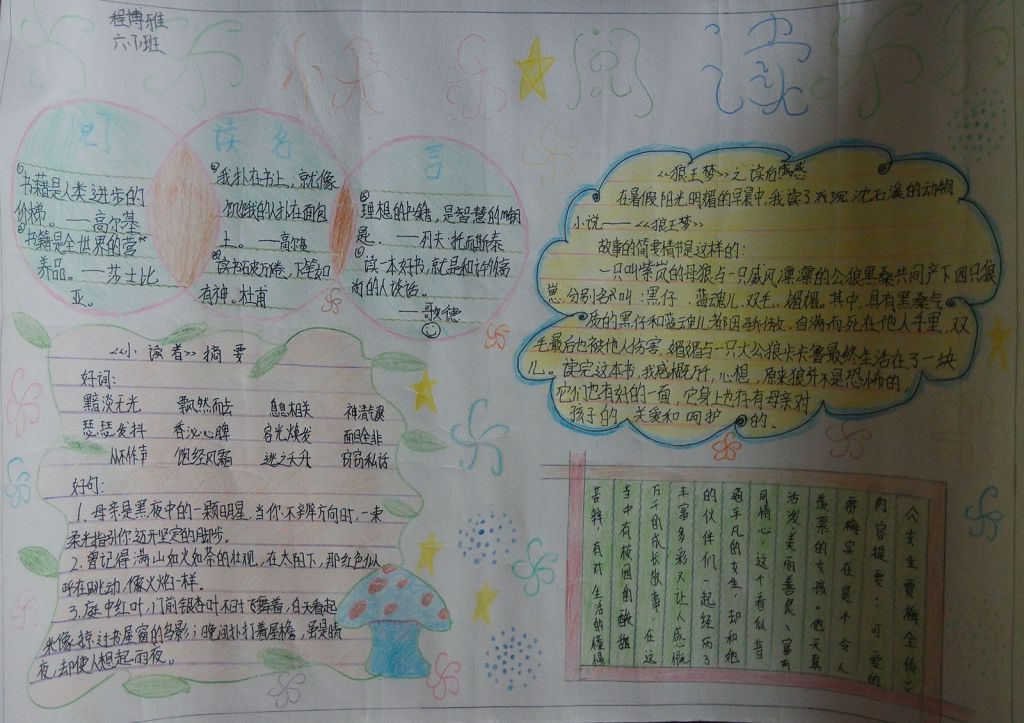 程博雅
六(7)班
小朵阅读
阅读名言
书籍是人类进步的
阶梯。——高尔基
书籍是全世界的营
养品。——莎士比
亚。
我扑在书上,就像
饥饿的人扑在面包
上。——高尔基
读书破万卷,下笔如
有神。杜甫
理想的书籍,是智慧的钥
匙.——列夫.托而斯泰
读一本好书,就是和许多高
尚的人谈话。
——歌德
《狼王梦》之读后感
在暑假阳光明媚的早晨中,我读了 沈石溪的动物
小说——《狼王梦》
故事的简要情节是这样的:
一只叫紫岚的母狼与一只威风凛凛的公狼黑桑共同产下四只狼
崽,分别名叫:黑仔、蓝魂儿、双毛、媚媚。其中,具有黑桑气
质的黑仔和蓝魂儿都因骄傲.自满而死在他人手里,双
毛最后也被他人伤害,媚媚与一只大公狼卡卡鲁最终生活在了一块
儿。读完这本书,我感慨万千,心想,原来狼并不是恐怖的,
它们也有好的一面,它身上也存有母亲对
孩子的、关爱和呵护的。
《小读者》摘要
好词:
黯淡无光 飘然而去 息息相关 神清气爽
瑟瑟发抖 香沁心脾 容光焕发 面目全非
从不作声 饱经风霜 逃之夭夭 窃窃私语
好句:
1、母亲是黑夜中的一颗明星,当你不辨方向时,一束
柔光指引你迈开坚定的脚步。
2、曾记得满山如火如荼的壮观,在太阳下,那红色似
呼在跳动,像火焰一样。
3、庭中红叶,门前银杏叶不时飞舞着,白天看起
来像掠过书屋窗的鸟影;晚间扑打着屋檐,虽是晴
夜,却使人想起一雨夜。
《女生贾梅全传》
内容提要:可爱的
贾梅实在是个令人
羡慕的女孩。他天真
活泼、美丽善良、富有
同情心。这个看似普
通平凡的女生,却和她
的伙伴们一起经历了
丰富多彩又让人感慨
万千的成长故事,在这
书中有校园的酸甜
苦辣,有对生活的懂得